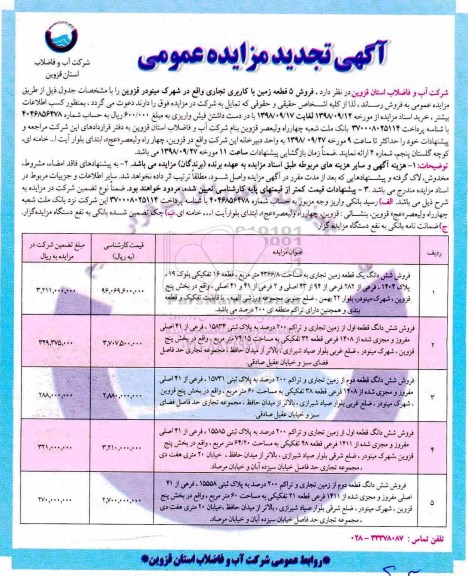 آگهی تجدید مزایده عمومی
شرکت آب و فاضلاب
استان قزوین
شرکت آب و فاضلاب استان قزوین در نظر دارد ، فروش ۵ قطعه زمین با کاربری تجاری واقع در شهرک مینودر قزوین را با مشخصات جدول ذیل از طریق
مزایده عمومی به فروش رساند . لذا از کلیه اشخاص حقیقی و حقوقی که تمایل به شرکت در مزایده فوق را دارند دعوت می گردد ، بمنظور کسب اطلاعات
بیشتر ، خرید اسناد مزایده از مورخه ۱۳۹۸/۰۹/۱۴ لغایت ۱۳۹۸/۰۹/۱۷ با در دست داشتن فیش واریزی به مبلغ ۶۰۰/۰۰۰ ریال به حساب شماره ۴۰۴۶۸۵۶۴۷۸
با شناسه پرداخت ۳۷۰۰۰۸۰۲۵۱۱۴ بانک ملت شعبه چهارراه ولیعصر قزوین بنام شرکت آب و فاضلاب استان قزوین به دفتر قراردادهای این شرکت مراجعه و
پیشنهادات خود را حداکثر تا ساعت ۹ مورخه ۱۳۹۸/۰۹/۲۷ به واحد دبیرخانه این شرکت واقع در قزوین ، چهار راه ولیعصر(عج)، ابتدای بلوار آیت ا... خامنه ای،
کوچه گلستان پنجم، شماره ۴ ارائه نمایند. ضمناً زمان بازگشایی پیشنهادات ساعت ۱۱ مورخه ۱۳۹۸/۰۹/۲۷ می باشد.
توضیحات:۱ - هزینه آگهی و سایر هزینه های مربوطه طبق اسناد مزایده به عهده برنده (برندگان) مزایده می باشد. ۲- به پیشنهادهای فاقد امضاء، مشروط،
مخدوش، لاک گرفته و پیشنهادهایی که بعد از مدت مقرر در آگهی مزایده واصل شود، مطلقاً ترتیب اثر داده نخواهد شد. سایر اطلاعات و جزییات مربوط در
اسناد مزایده مندرج می باشد. ۳ - پیشنهادات قیمت کمتر از قیمتهای پایه کارشناسی تعیین شده، مردود خواهند بود. ضمناً نوع تضمین شرکت در مزایده به
شرح ذیل می باشد. الف) رسید بانکی واریز وجه مزبور به حساب شماره ۴۰۴۶۸۵۶۴۷۸ با شناسه پرداخت ۳۷۰۰۰۸۰۲۵۱۱۴ این شرکت نزد بانک ملت شعبه
چهارراه ولیعصر(عج) قزوین، بنشانی : قزوین، چهارراه ولیعصر(عج)، ابتدای بلوار آیت ا... خامنه ای، ب) چک تضمین شده بانکی به نفع دستگاه مزایده گزار.
ج) ضمانت نامه بانکی به نفع دستگاه مزایده گزار
ردیف
عنوان مزایده
قیمت کارشناسی (به ریال)
مبلغ تضمین شرکت در مزایده به ریال
۱
فروش شش دانگ یک قطعه زمین تجاری به مساحت ۴۳۶۶/۸ متر مربع ، قطعه ۱۶ تفکیکی بلوک ۱۹،
پلاک ۱۴۰۴، فرعی از ۲۸۲ فرعی از ۹۴ از ۴۳ اصلی و ۲ فرعی از ۴۱ و ۴۱ اصلی، واقع در بخش پنج
قزوین، شهرک مینودر، بلوار ۲۲ بهمن، ضلع جنوبی مجموعه ورزشی ، با قابلیت تفکیک و قطعه
بندی و همچنین دارای تراکم منطقه ای ۲۰۰ درصد می باشد.
۹۶,۰۶۹,۶۰۰,۰۰۰
۳,۲۱۱,۰۰۰,۰۰۰
۲
فروش شش دانگ قطعه اول از زمین تجاری و تراکم ۲۰۰ درصد به پلاک ثبتی ۱۵۸۳۴ ، فرعی از ۴۱ اصلی
مفروز و مجزی شده از ۱۴۰۸ فرعی قطعه ۳۲ تفکیکی به مساحت ۷۲/۱۵ متر مربع ، واقع در بخش پنج
قزوین ، شهرک مینودر ، ضلع غربی بلوار صیاد شیرازی ، بالاتر از میدان حافظ ، مجموعه تجاری حد فاصل
فضای سبز و خیابان عقیل صادقی
۳,۷۰۷,۵۰۰,۰۰۰
۳۴۹,۳۷۵,۰۰۰
۳
فروش شش دانگ قطعه دوم از زمین تجاری و تراکم ۲۰۰ درصد به پلاک ثبتی ۱۵۷۳۱ ، فرعی از ۴۱ اصلی
مفروز و مجزی شده از ۱۴۰۸ فرعی قطعه ۲۸ تفکیکی به مساحت ۶۰ متر مربع ، واقع در بخش پنج قزوین
، شهرک مینودر ، ضلع غربی بلوار صیاد شیرازی ، بالاتر از میدان حافظ ، مجموعه تجاری حد فاصل فضای
سبز و خیابان عقیل صادقی
۲,۸۸۰,۰۰۰,۰۰۰
۲۸۸,۰۰۰,۰۰۰
۴
فروش شش دانگ قطعه اول از زمین تجاری و تراکم ۲۰۰ درصد به پلاک ثبتی ۱۵۵۸۵ ، فرعی از ۴۱ اصلی
مفروز و مجزی شده از ۱۴۱۱ فرعی قطعه ۴۸ تفکیکی به مساحت ۶۴/۲۰ متر مربع ، واقع در بخش پنج
قزوین ، شهرک مینودر ، ضلع شرقی بلوار صیاد شیرازی ، بالاتر از میدان حافظ ، خیابان ۲۰ متری هفت دی
، مجموعه تجاری حد فاصل خیابان سیزده آبان و خیابان مرصاد.
۳,۲۱۰,۰۰۰,۰۰۰
۳۲۱,۰۰۰,۰۰۰
۵
فروش شش دانگ قطعه دوم از زمین تجاری و تراکم ۲۰۰ درصد به پلاک ثبتی ۱۵۵۵۸ ، فرعی از ۴۱
اصلی مفروز و مجزی شده از ۱۴۱۱ فرعی قطعه ۲۱ تفکیکی به مساحت ۶۰ متر مربع ، واقع در بخش پنج
قزوین ، شهرک مینودر ، ضلع شرقی بلوار صیاد شیرازی ، بالاتر از میدان حافظ ، خیابان ۲۰ متری هفت دی
، مجموعه تجاری حد فاصل خیابان سیزده آبان و خیابان مرصاد.
۲,۷۰۰,۰۰۰,۰۰۰
۲۷۰,۰۰۰,۰۰۰
تلفن تماس : ۳۳۳۷۸۰۸۷ - ۰۲۸
روابط عمومی شرکت آب و فاضلاب استان قزوین